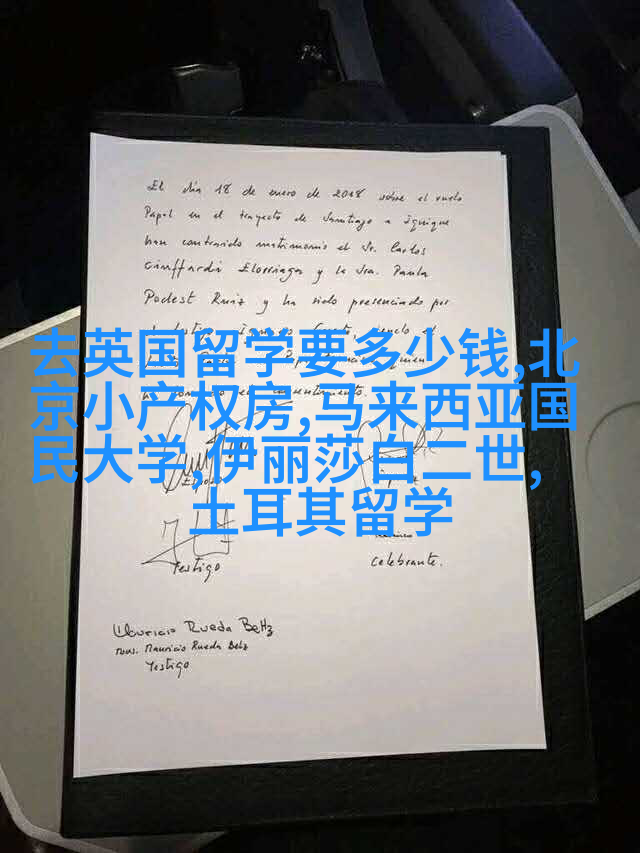 El día 18 de enero de 2018 sobre el vuelo
Papal en el trayecto de Santiago a Iquique
han contraido matrimonio el Sr. Carlos
Ciuffardi Elorriaga y la Sra. Paula
Podest Ruiz y ha sido presenciado por
去英国留学要多少钱,北
京小产权房,马来西亚国
民大学,伊丽莎白二世,
土耳其留学
Testigo
Celebrante.
Mauricio Rueda Beltz
Mons. Mauricio Rueda Beltz
Testigo